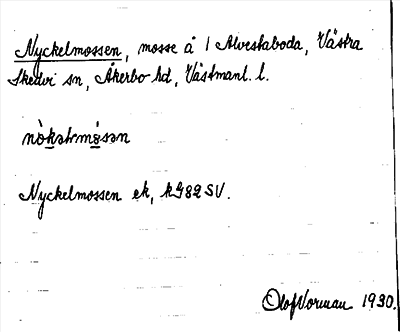 Nyckelmossen, mosse å 1 Alvestaboda, Västra
Skedvi sn, Åkerbo hd, Västmanl. l.
Nyckelmossen ek, kG82SV.
Olof Norman 1930.